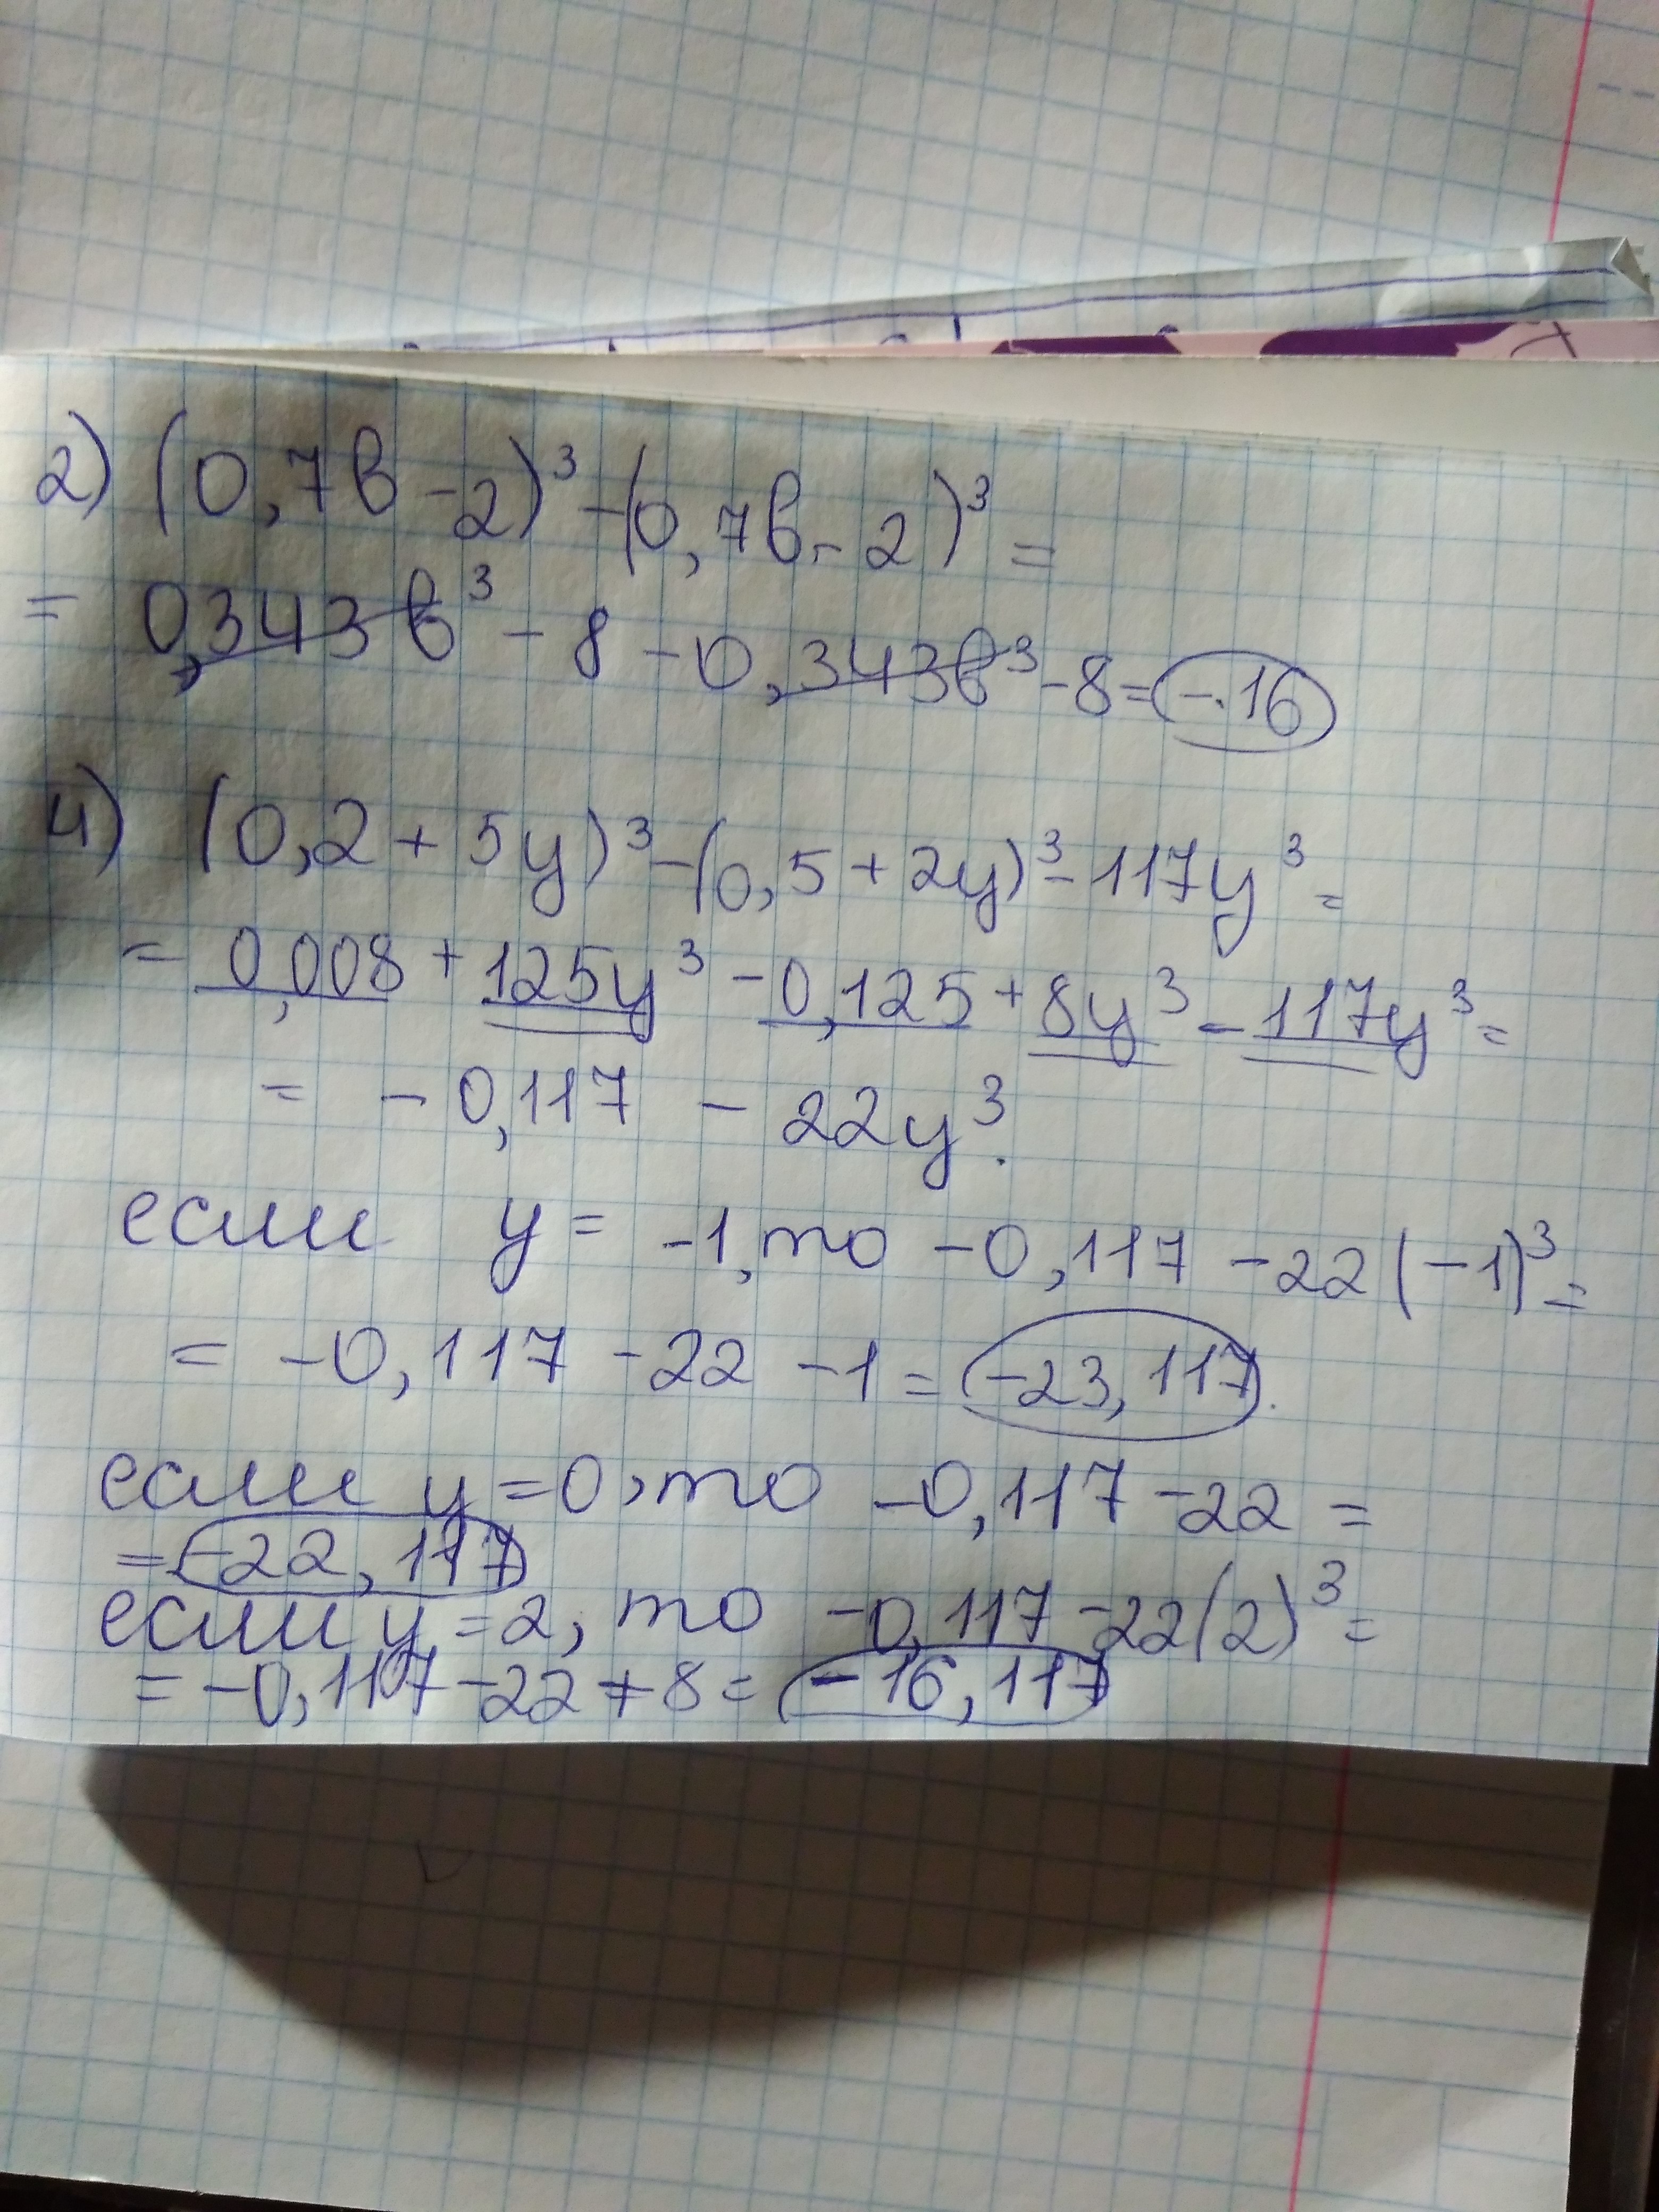 2) (0,7в - 2)³ - (0,7в - 2)³ =
= 0,343в³ - 8 - 0,343в³ - 8 = -16
4) (0,2 + 5y)³ - (0,5 + 2y)³ - 117y³ =
= 0,008 + 125y³ - 0,125 + 8y³ - 117y³ =
= - 0,117 - 22y³.
если y = -1, то -0,117 - 22(-1)³ =
= -0,117 - 22 - 1 = -23,117.
если y = 0, то -0,117 - 22 =
= -22,117
если y = 2, то -0,117 - 22(2)³ =
= -0,117 - 22 + 8 = -16,117